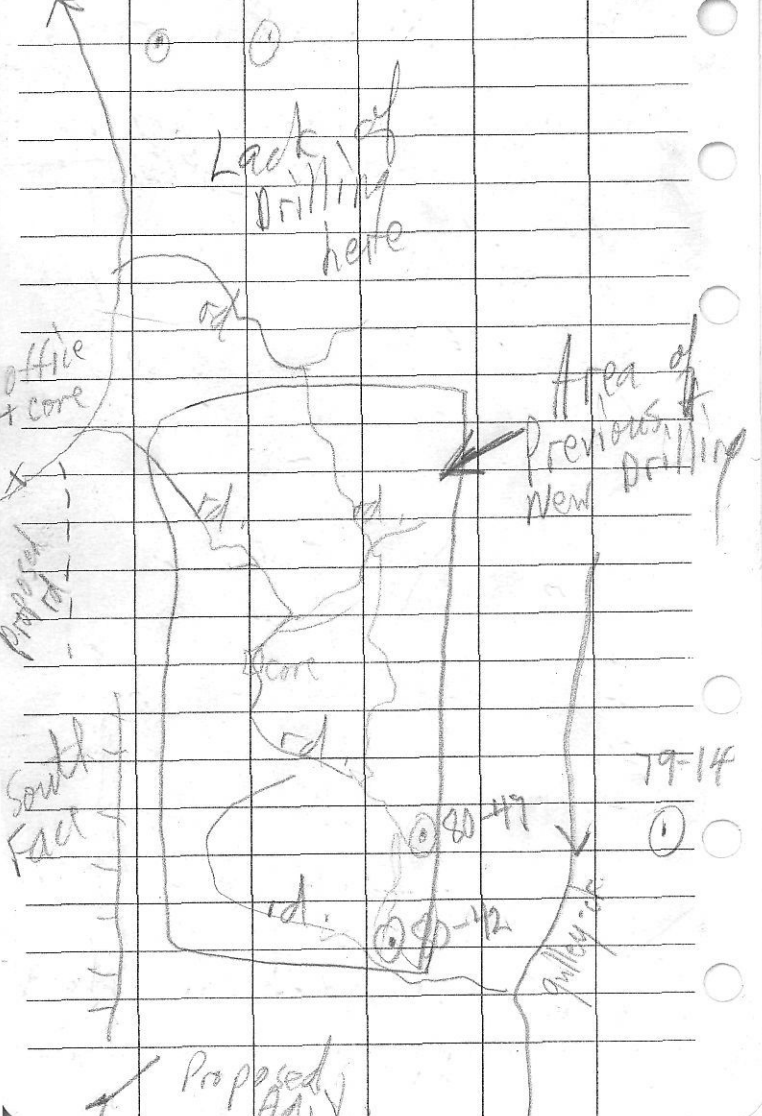 Lack of
Drilling
here
rd.
office
+ core
Area of
Previous +
New Drilling
rd.
rd.
Proposed
rd.
core
rd.
South
Face
79-14
80-49
rd.
80-42
gulley-ck.
Proposed
Adit